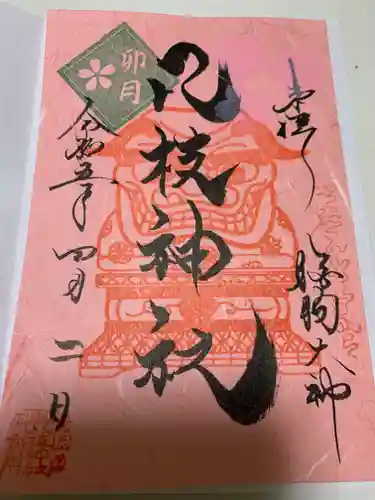 奉拝
狛狗大神
八枝神社
卯月
令和五年
四月二日